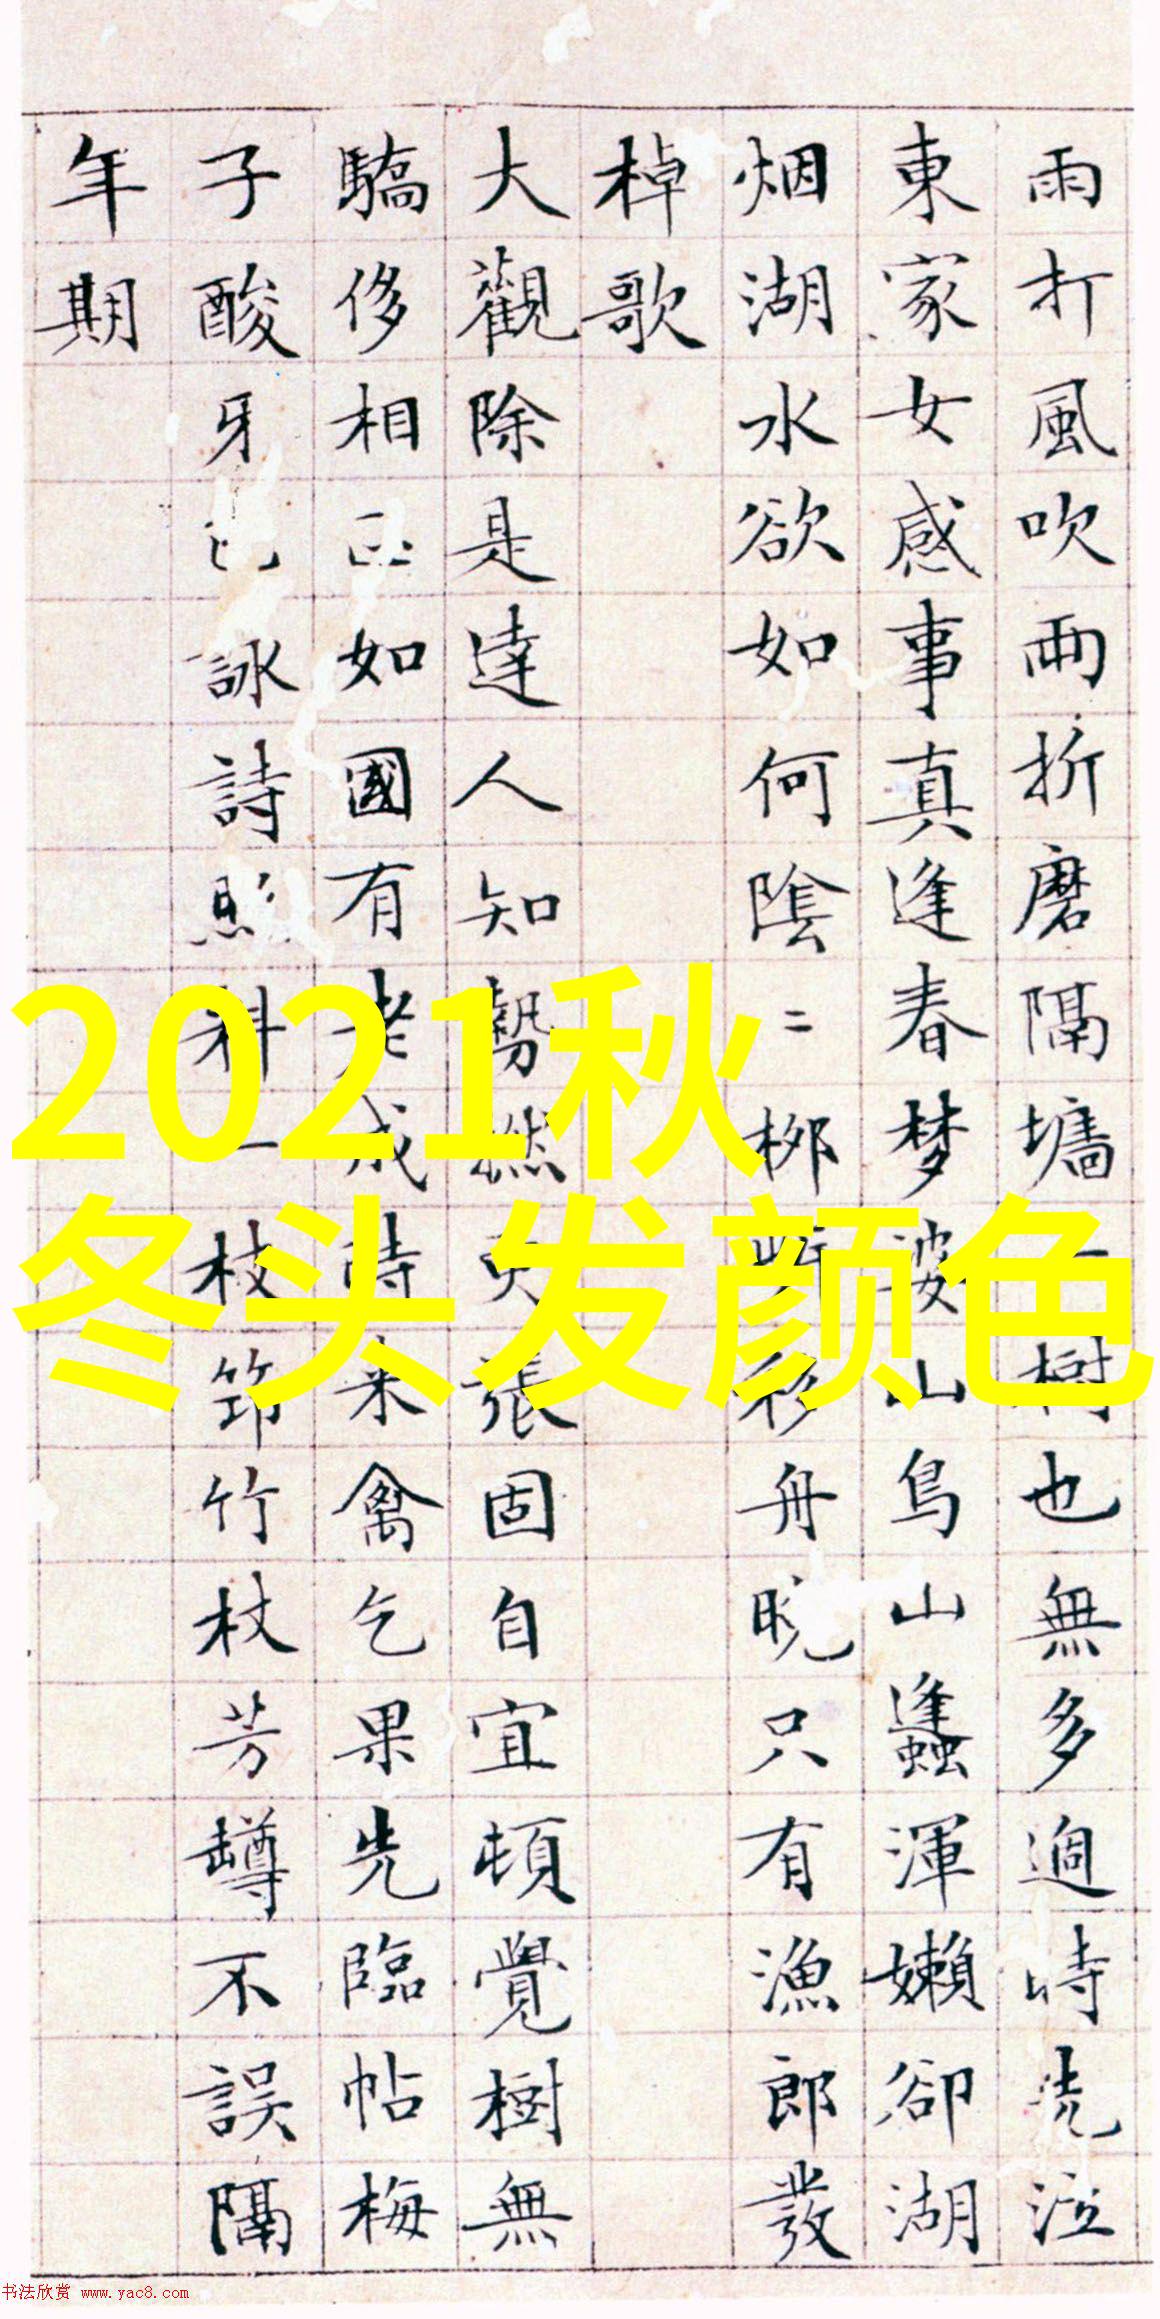 2021秋
冬头发颜色
雨打風吹雨折磨隔墻樹也無多過時洗泣
東家女感事真逢春梦婆山鳥山蠭渾嬾卻湖
烟湖水欲如何陰二柳彩舟晚只有漁郎發
棹歌
大觀除是達人知勢張固自宜頓覺樹無
驕侈相如國有老成時来禽乞果先臨帖梅
子酸牙詠詩照料一枝筇竹杖芳罇不誤隔
年期
书法欣赏 www.yac8.com